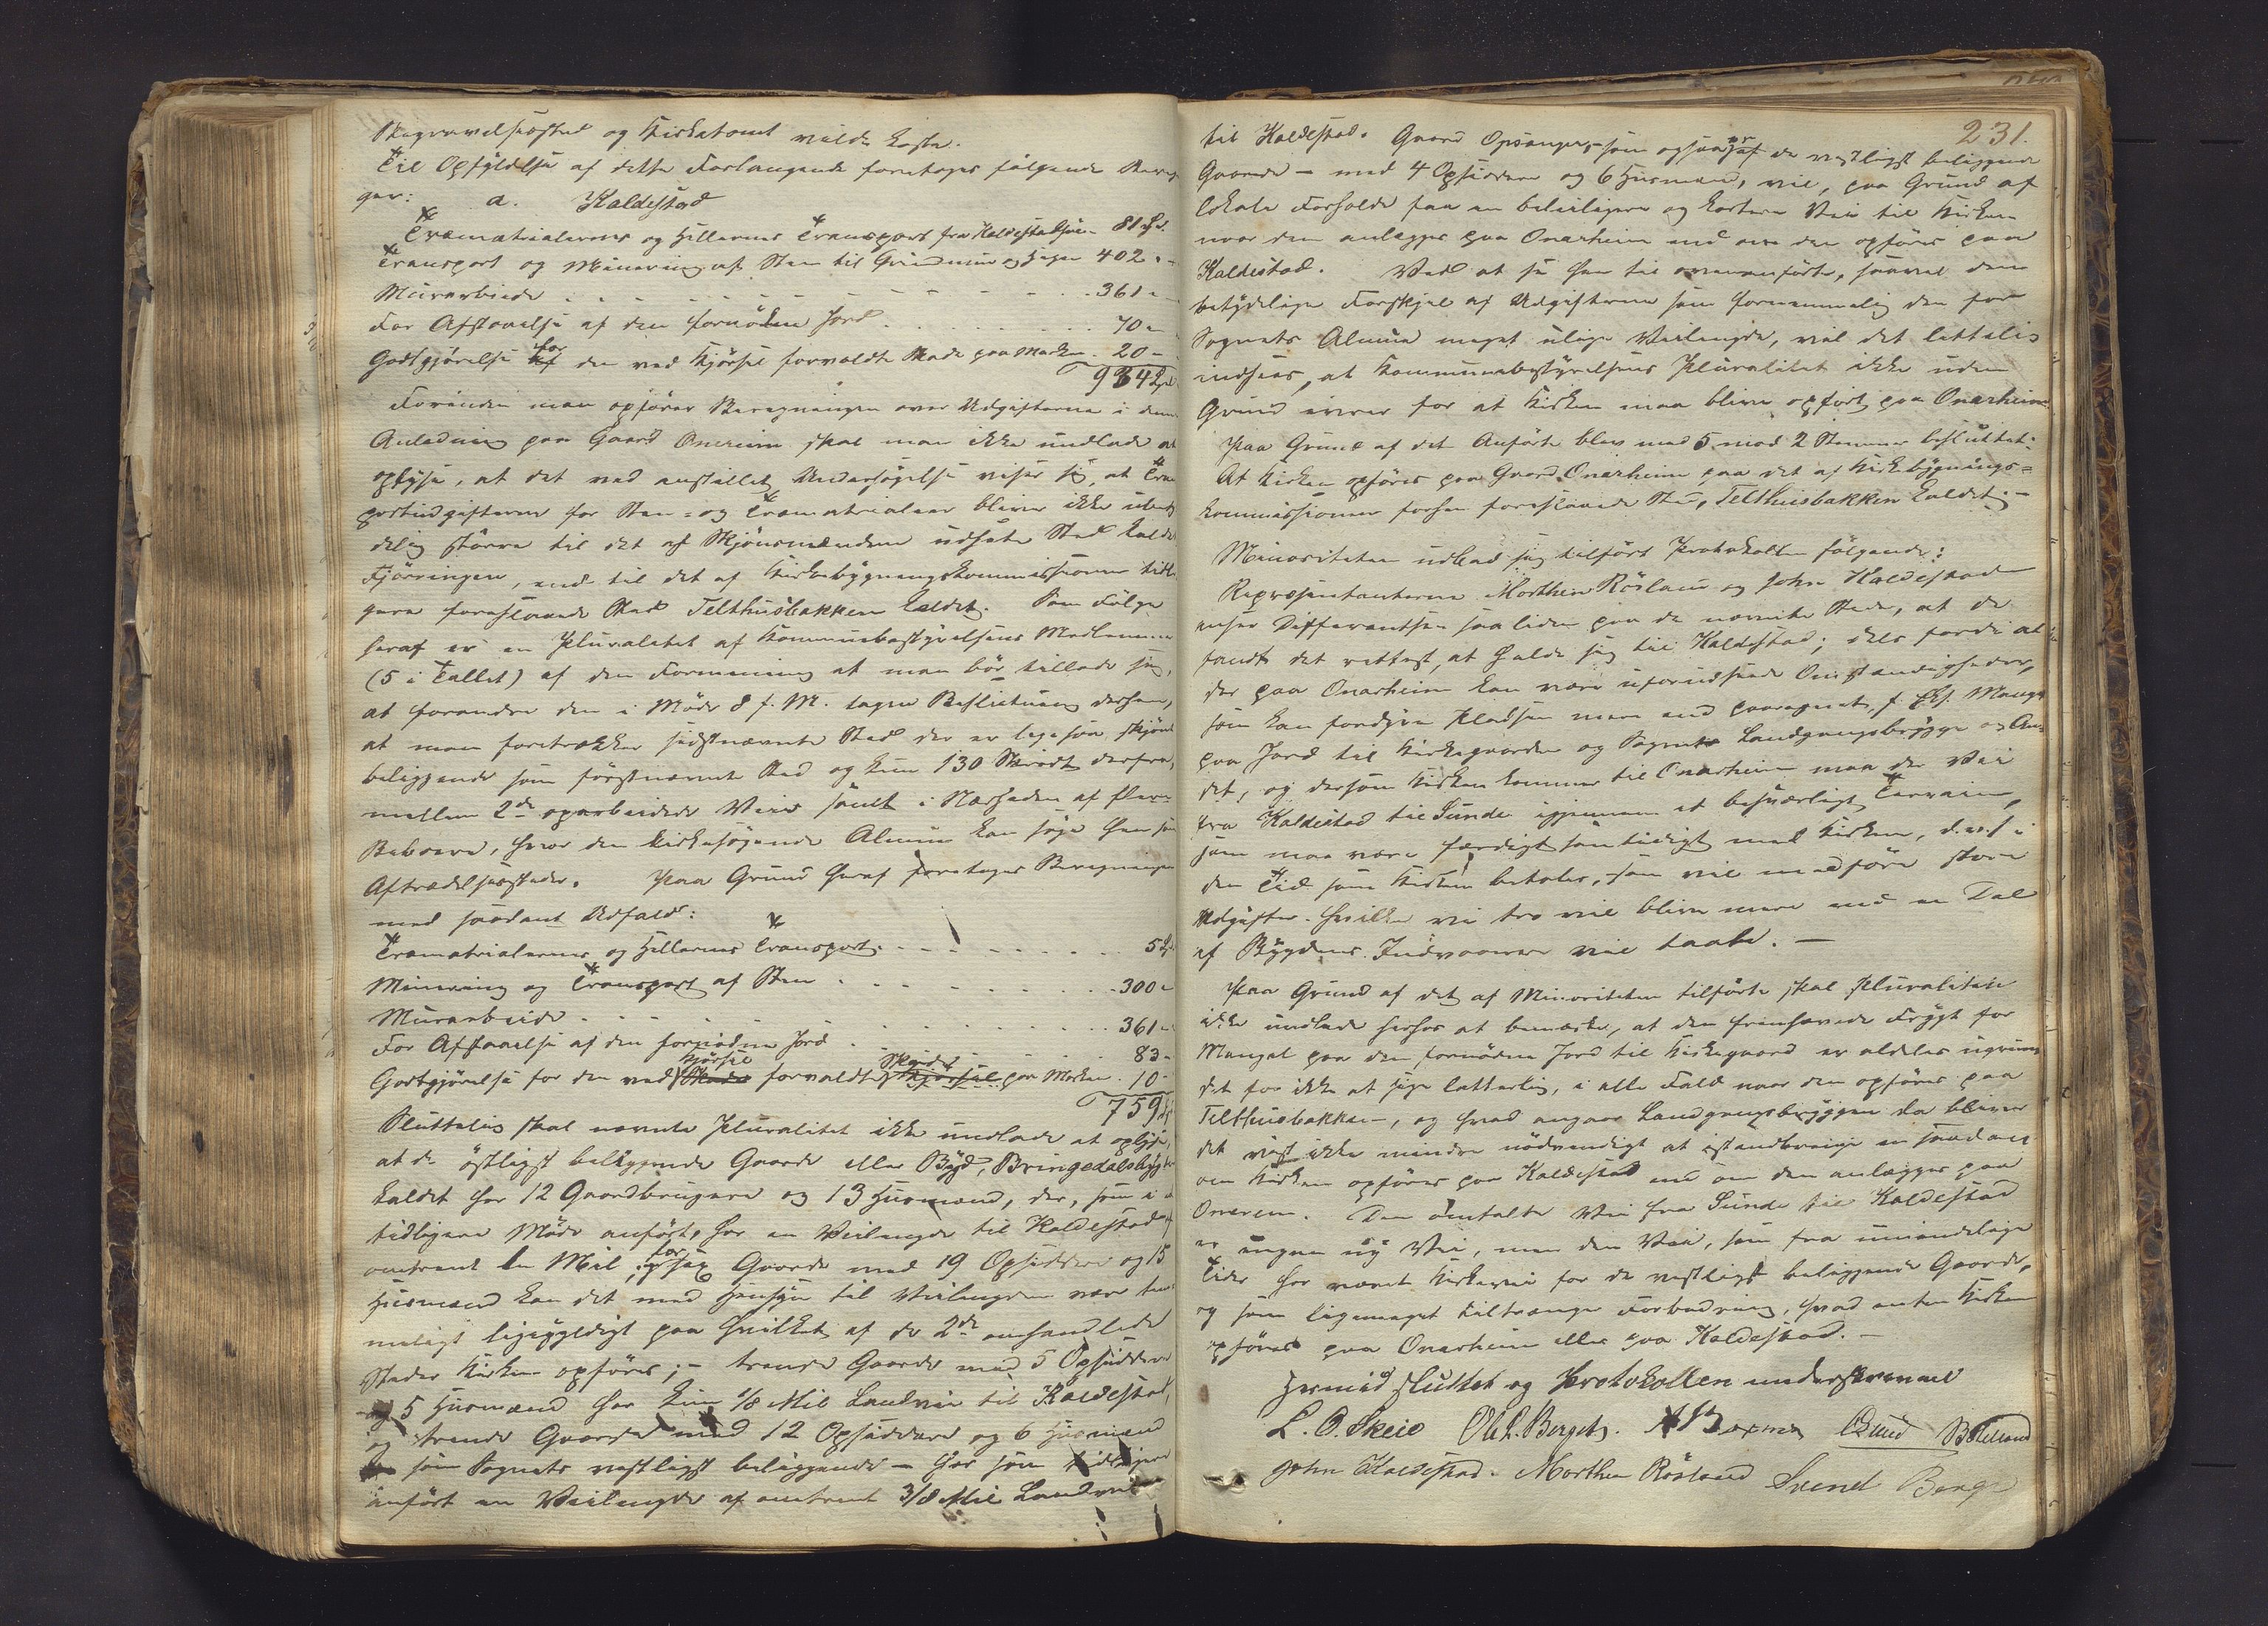 Begravelsesstæd og Kirketomt vilde koste.
Til Opfyldelse af dette Forlangende foretoges følgende Bereg-
ger: a. Kaldestad
Træmatrialernes og Hellernes Transport fra Kaldestadsjøen 81 Spd.
Transport og Minering af Sten til Grundmur og Gjerde 402 "
Murarbeide . . . 361 "
For Afstaaelse af den fornødne Jord . . . 70 "
Godtgjørelse for den ved Kjørsel forvoldte Skade paa Marken . 20 "
934 Spd
Forinden man opfører Beregningen over Udgifterne i denne
Anledning paa Gaard Onereim skal man ikke undlade at
oplyse, at det ved anstillet Undersøgelse viser sig, at Trans-
portudgifterne for Sten- og Træmatrialier bliver ikke ubety-
delig større til det af Skjønsmændene udseete Sted kaldet
Fjørringen, end til det af Kirkebygningskommissionen tidli-
gere foreslaaede Sted Telthusbakken kaldet. Som Følge
heraf er en Pluralitet af Kommunebestyrelsens Medlemmer
(5 i Tallet) af den Formening at man bør tillade sig,
at forandre den i Møde 8 f. M. tagne Beslutning derhen,
at man foretrækker sidstnævnte Sted der er ligesaa skjønt
beliggende som førstnævnte Sted og kun 130 Skridt derfra,
mellem 2de oparbeidede Veie samt i Nærheden af flere
Beboere, hvor den kirkesøgende Almue kan søge hen som
Aftrædelsessteder. Paa Grund heraf foretoges Beregningen
med saadant Udfald:
Træmatrialernes og Hellernes Transport . . . 5 Spd
Minering og Transport af Sten . . . 300 "
Murarbeide . . . 361 "
For Afstaaelse af den fornødne Jord . . . 83 "
Godtgjørelse for den ved Kjørsel forvoldte Skade paa Marken . 10 "
759 Spd
Sluttelig skal nævnte Pluralitet ikke undlade at oplyse,
at de østligst beliggende Gaarde eller Bygd, Bringedalsbygden
kaldet har 12 Gaardbrugere og 13 Husmænd, der, som i
tidligere Møde anført, har en Veilængde til Kaldestad af
omtrent en Mil; for sex Gaarde med 19 Opsiddere og 15
Husmænd kan det med Hensyn til Veilængden være tem-
meligt ligegyldigt paa hvilket af de 2de omhandlede
Steder Kirken opføres; - trende Gaarde med 5 Opsiddere
og 5 Husmænd har kun 1/8 Mil Landvei til Kaldestad,
og trende Gaarde med 12 Opsiddere og 6 Husmænd
som Sognets vestligst beliggende - har som tidligere
anført en Veilængde af omtrent 3/8 Mil Landvei
231.
til Kaldestad. Gaard Opsanger - som ogsaa er de vestligst beliggende
Gaarde - med 4 Opsiddere og 6 Husmænd, vil, paa Grund af
lokale Forholde faa en beleiligere og kortere Vei til Kirken
naar den anlægges paa Onarheim end om den opføres paa
Kaldestad. Ved at se hen til ovenanførte, saavel den
betydelige Forskjel af Udgifterne som fornemmelig den for
Sognets Almue meget ulige Veilængde, vil det lettelig
indsees, at Kommunebestyrelsens Pluralitet ikke uden
Grund ivrer for at Kirken maa blive opført paa Onarheim.
Paa Grund af det Anførte blev med 5 mod 2 Stemmer besluttet:
At Kirken opføres paa Gaard Onarheim paa det af Kirkebygnings-
kommissionen forhen foreslaaede Sted, Telthusbakken kaldet. -
Minoriteten udbad sig tilført Protokollen følgende:
Repræsentanterne Morthen Røsland og John Kaldestad
anser Differentsen saa liden paa de nævnte Steder, at de
fandt det rettest, at holde sig til Kaldestad; dels fordi at
der paa Onarheim kan være uforudseede Omstændigheder,
som kan fordyre Pladsen mere end paaregnet, f. Ex. Mangel
paa Jord til Kirkegaarden og Sognets Landgangsbrygge og An-
det, og dersom Kirken kommer til Onarheim maa der Vei
fra Kaldestad til Sunde igjennem et besværligt Terræin,
som maa være færdigt samtidigt med Kirken, d. v. s. i
den Tid som Kirken betales, som vil medføre store
Udgifter. Hvilke vi tro vil blive mere end en Del
af Bygdens Indvaanere vil taale. -
Paa Grund af det af Minoriteten tilførte skal Pluraliteten
ikke undlade herhos at bemærke, at den fremhævede Frygt for
Mangel paa den fornødne Jord til Kirkegaard er aldeles ugrun-
det for ikke at sige latterlig, i alle Fald naar den opføres paa
Telthusbakken -, og hvad angaar Landgangsbryggen da bliver
det vist ikke mindre nødvendigt at istandbringe en saadan
om Kirken opføres paa Kaldestad end om den anlægges paa
Onereim. Den omtalte Vei fra Sunde til Kaldestad
er ingen ny Vei, men den Vei, som fra umindelige
Tider har været Kirkevei for de vestligst beliggende Gaarde,
og som ligemeget tiltrænger Forbedring, hvad enten Kirken
opføres paa Onarheim eller paa Kaldestad. -
Hermed sluttet og Protokollen underskreven
L. O. Skeie Ole L. Berget.
John Kaldestad. Morthen Røsland Svend Berge